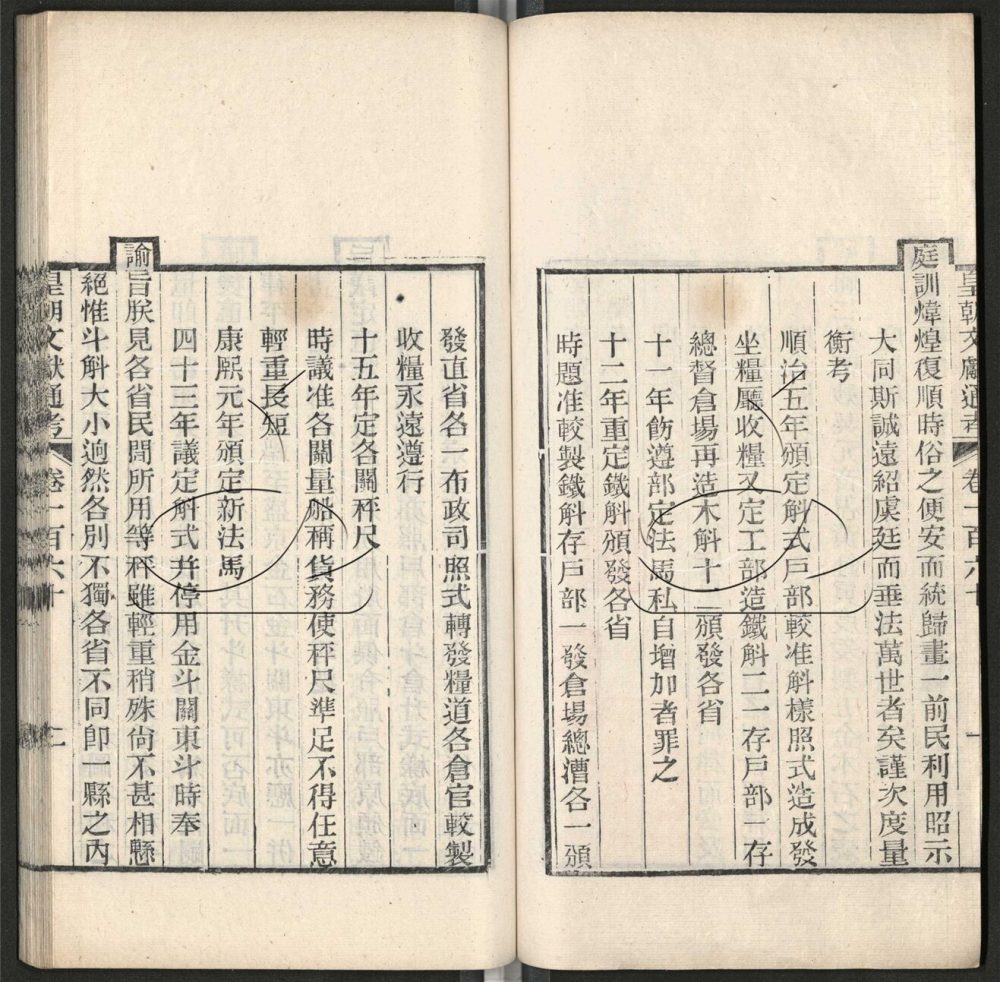 皇朝文獻通考 卷一百六十 一
庭訓煒煌復順時俗之便安而統歸畫一前民利用昭示
大同斯誠遠紹虞廷而垂法萬世者矣謹次度量
衡考
順治五年頒定斛式戶部較准斛樣照式造成發
坐糧廳收糧又定工部造鐵斛二一存戶部一存
總督倉場再造木斛十二頒發各省
十一年飭遵部定法馬私自增加者罪之
十二年重定鐵斛頒發各省
時題准較製鐵斛存戶部一發倉場總漕各一頒
發直省各一布政司照式轉發糧道各倉官較製
收糧永遠遵行
十五年定各關秤尺
時議准各關量船稱貨務使秤尺準足不得任意
輕重長短
康熙元年頒定新法馬
四十三年議定斛式并停用金斗關東斗時奉
諭旨朕見各省民間所用等秤雖輕重稍殊尙不甚相懸
絕惟斗斛大小迥然各別不獨各省不同卽一縣之內
皇朝文獻通考 卷一百六十 二